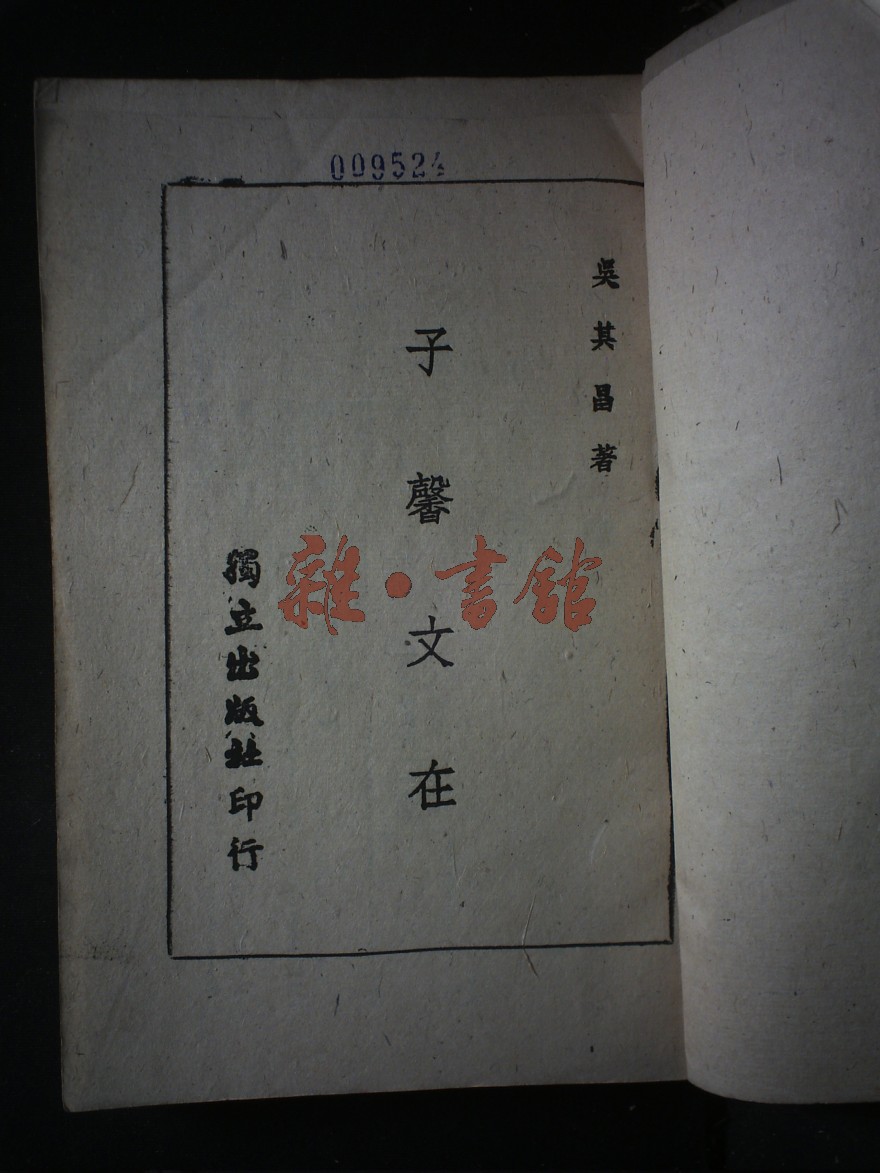 009524
吳其昌著
子馨文在
獨立出版社印行
雜·書館